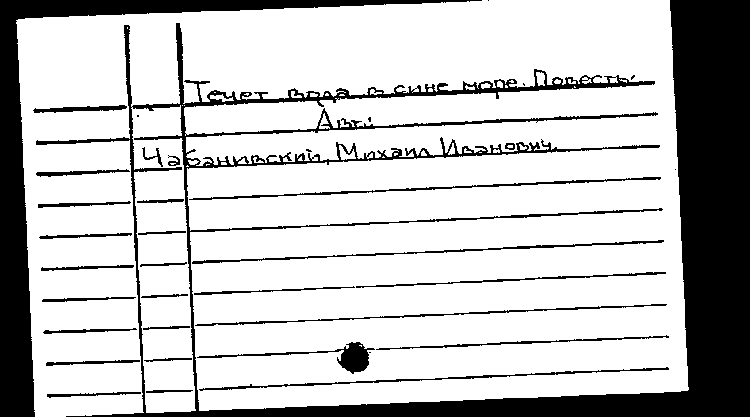 Течет вода в сине море. Повесть.
Авт.:
Чабанивский, Михаил Иванович.